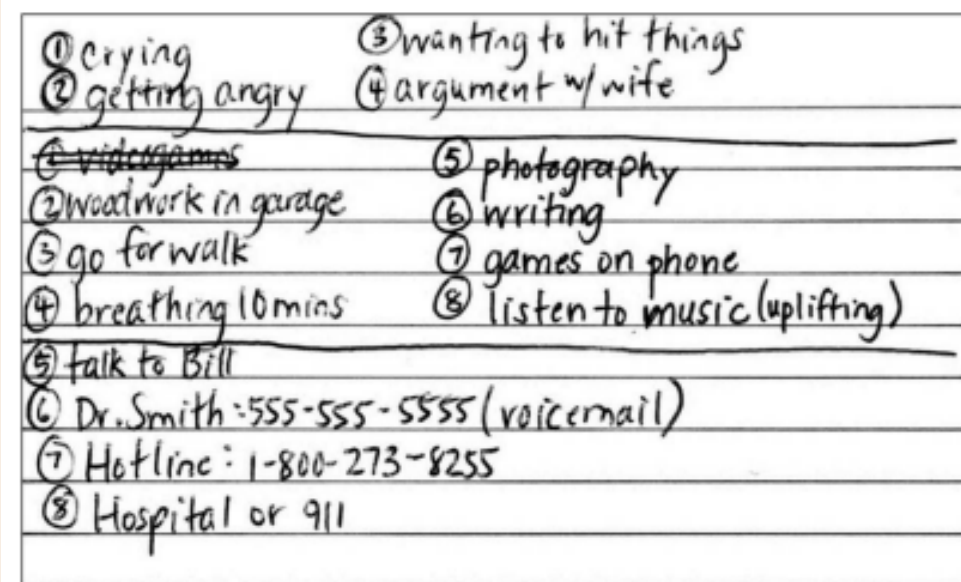 ① crying
② getting angry
③ wanting to hit things
④ argument w/ wife
① videogames
② woodwork in garage
③ go for walk
④ breathing 10 mins
⑤ photography
⑥ writing
⑦ games on phone
⑧ listen to music (uplifting)
⑤ talk to Bill
⑥ Dr. Smith: 555-555-5555 (voicemail)
⑦ Hotline: 1-800-273-8255
⑧ Hospital or 911